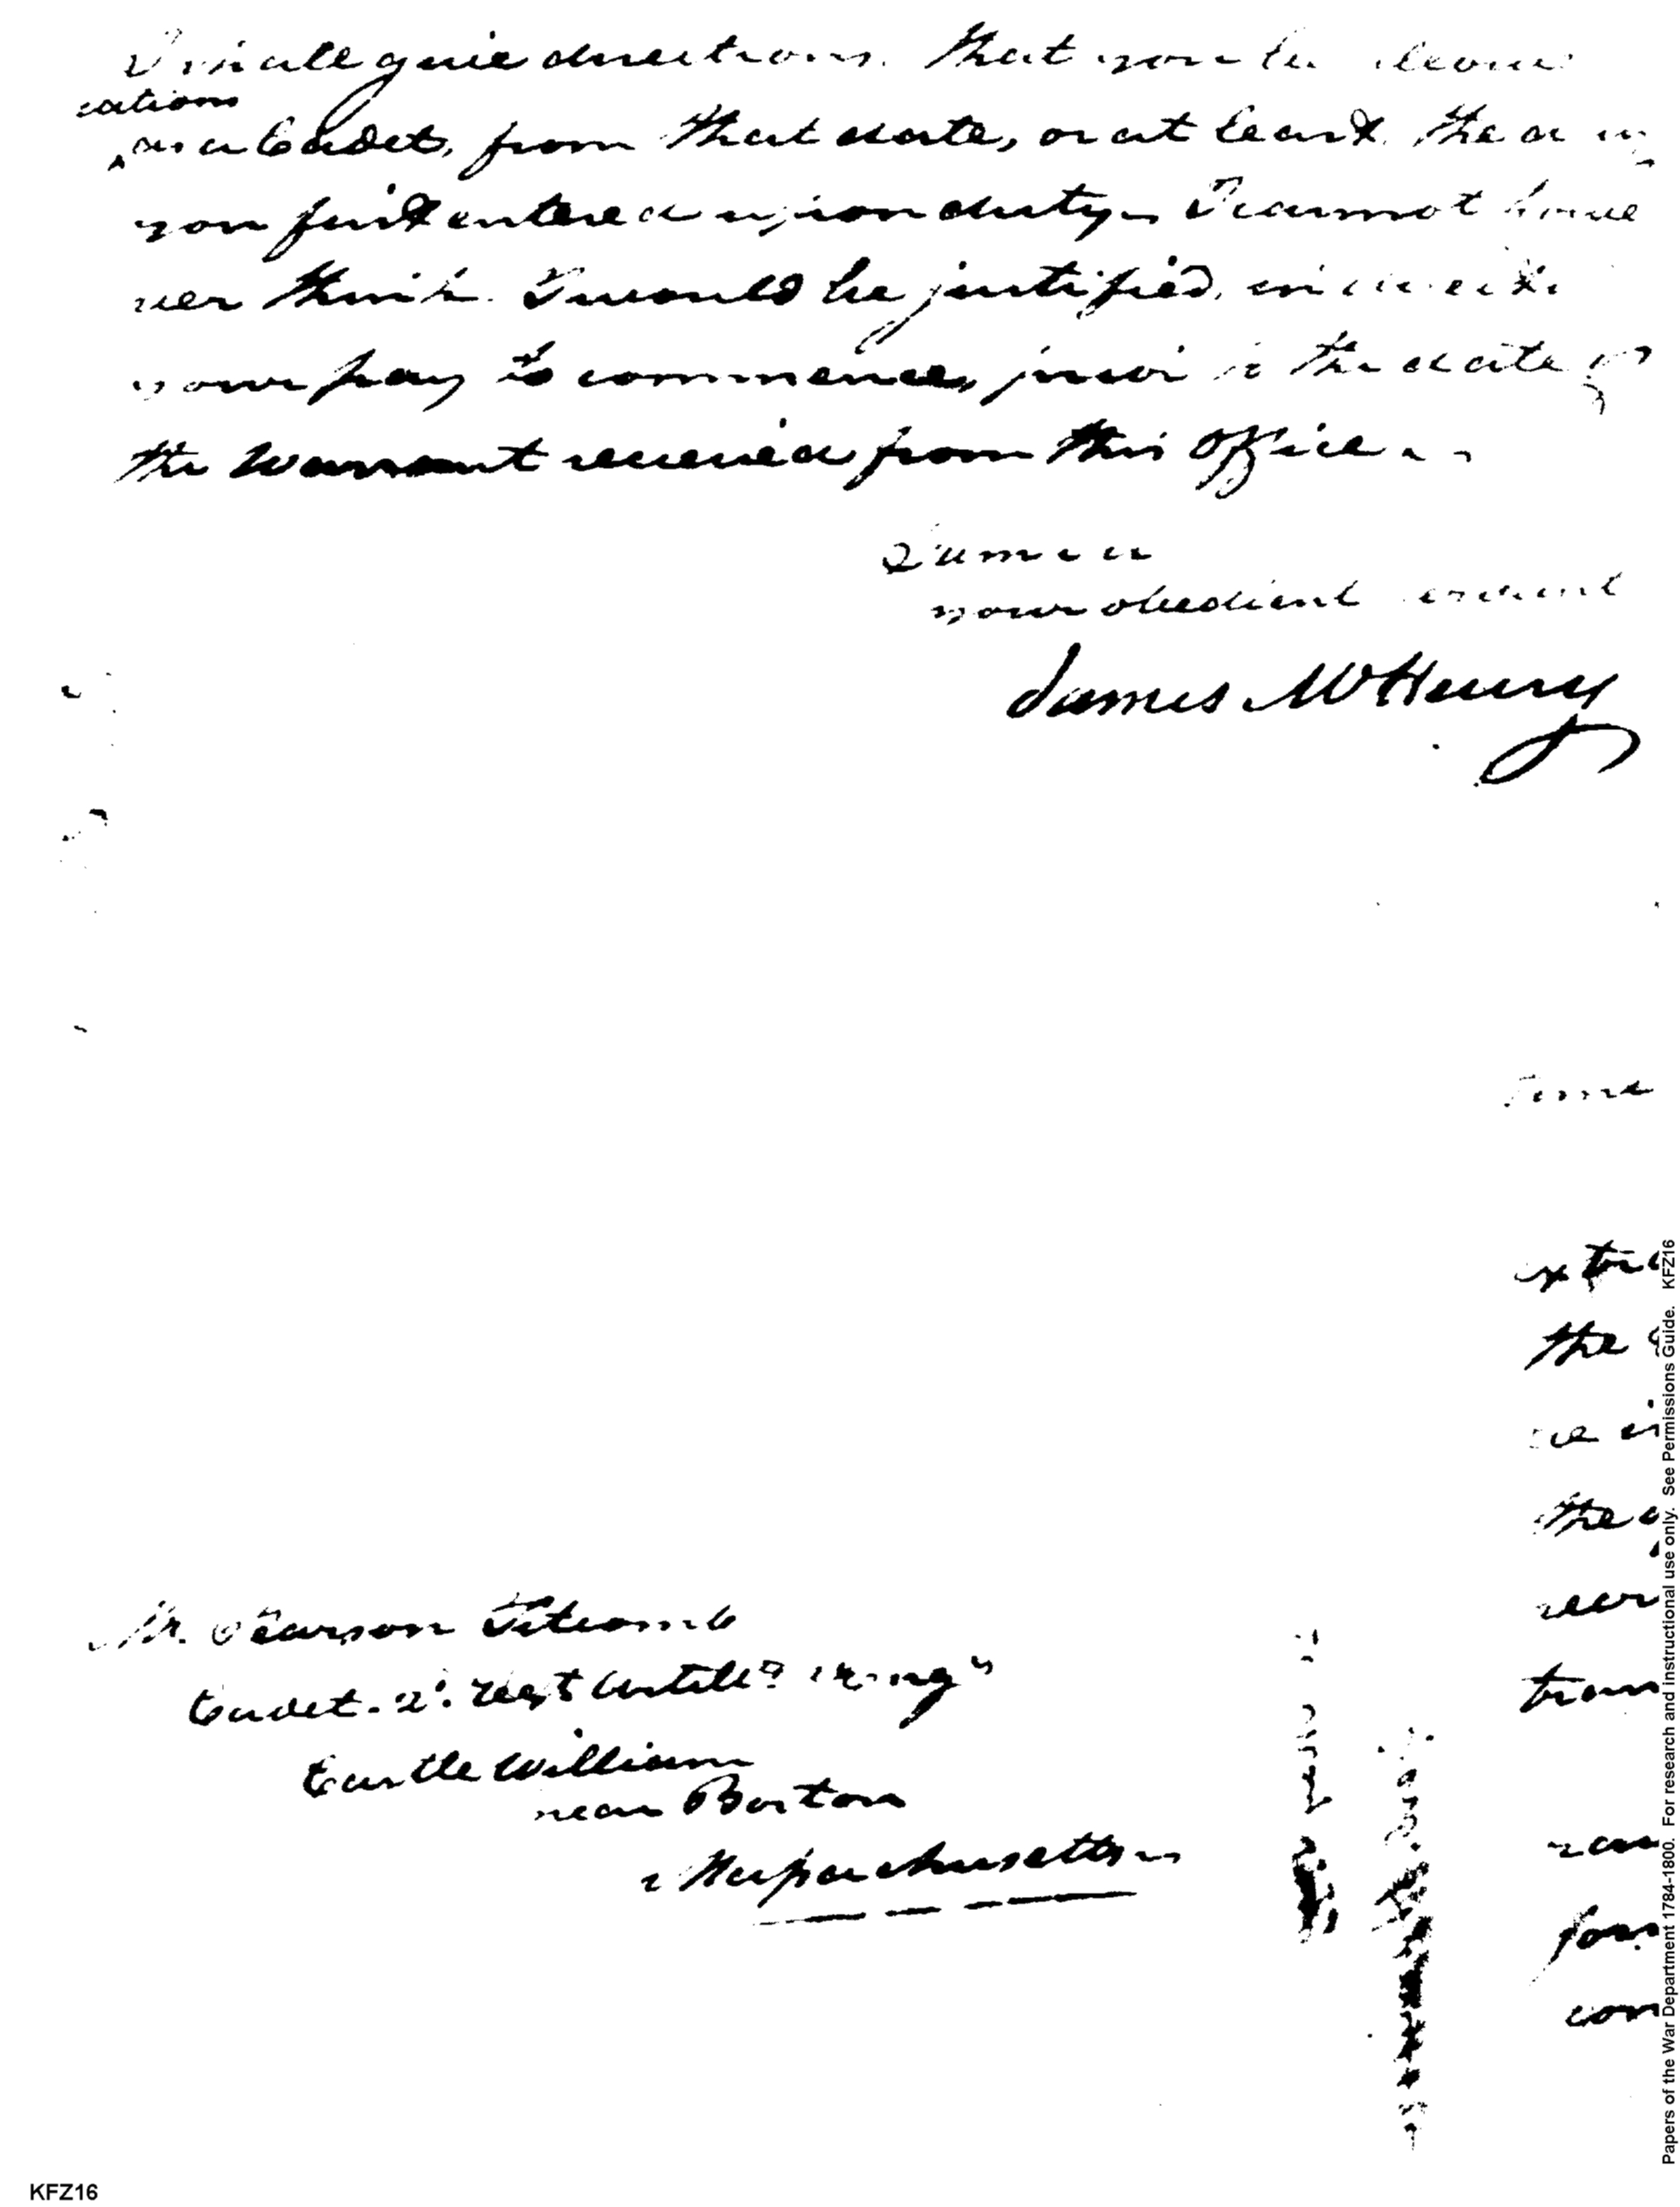 I shall give directions that you be
rations
as a Cadet, from that date, or at least the day
you first entered upon duty. I cannot howe
ver think I would be justified, in
your pay to commence, prior to the date of
the Warrant received from this office
I am Sir
your obedient servant
James McHenry
Time
extra
the
the
ver
tran
for
con
Mr. Pearson Titcomb
Cadet. 2d. Regt Artill
Castle William
near Boston
Massachusetts
Papers of the War Department 1784-1800. For research and instructional use only. See Permissions Guide. KFZ16
KFZ16